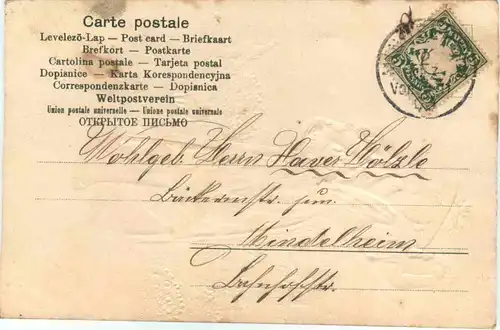 Carte postale
Levelező-Lap — Post card — Briefkaart
Brefkort — Postkarte
Cartolina postale — Tarjeta postal
Dopisnice — Karta Korespondencyjna
Correspondenzkarte — Dopisnica
Weltpostverein
Union postale universelle — Unione postale universale
ОТКРЫТОЕ ПИСЬМО
Wohlgeb. Herrn Xaver Hölzle
Bäckermstr. jun.
Mindelheim
Bahnhofstr.